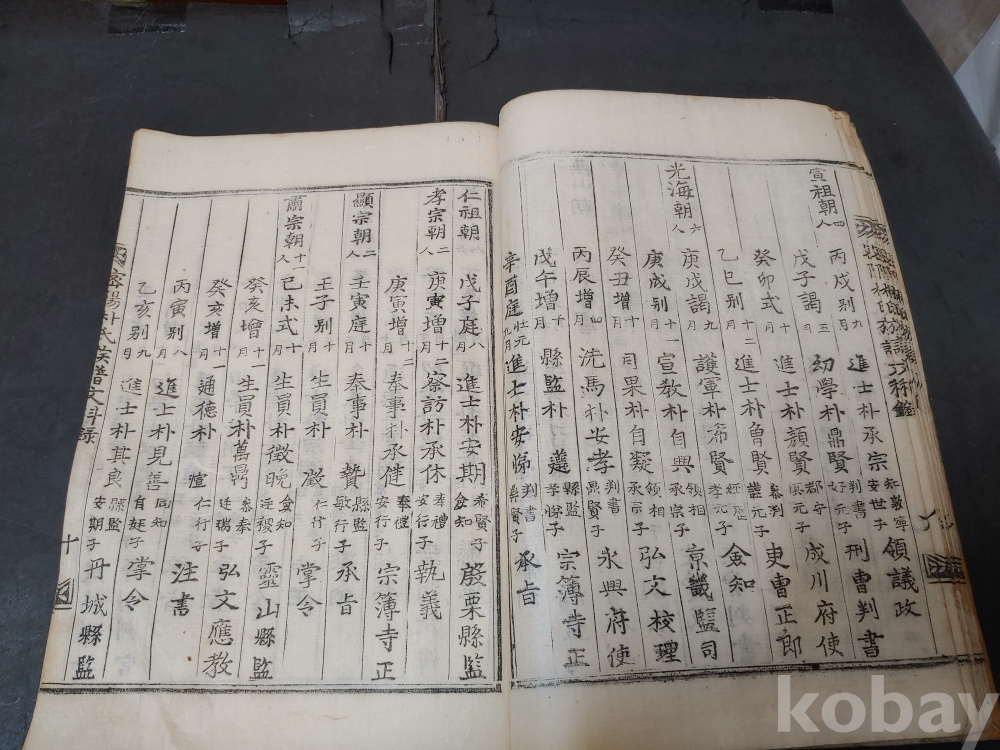 宣祖朝四人
丙戌别九月 進士朴承宗 知敦寧安世子 領議政
戊子謁五月 幼學朴鼎賢 判書好元子 刑曹判書
癸卯式二月 進士朴顏賢 郡守 元子 成川府使
乙巳别十二月 進士朴曾賢 參判 元子 吏曹正郎
光海朝六人
庚戌謁九月 護軍朴希賢 孝元子 僉知
庚戌别十一月 宣教朴自興 領相承宗子 京畿監司
癸丑增 月 司果朴自凝 領相承宗子 弘文校理
丙辰增四月 洗馬朴安孝 判書鼎賢子 永興府使
戊午增十月 縣監朴 遵 縣監孝悌子 宗簿寺正
辛酉庭壯元九月 進士朴安悌 判書鼎賢子 承旨
仁祖朝 人
戊子庭八月 進士朴安期 僉知希賢子 殷栗縣監
孝宗朝二人
庚寅增十二月 察訪朴承休 奉禮安行子 執義
庚寅增十二月 奉事朴承健 奉禮安行子 宗簿寺正
顯宗朝二人
壬寅庭十一月 奉事朴 贄 縣監敏行子 承旨
壬子别十月 生員朴 澂 仁行子 掌令
肅宗朝十一人
己未式十月 生員朴徵晚 僉知 子 靈山縣監
癸亥增十一月 生員朴萬鼎 參奉廷瑞子 弘文應教
癸亥增十一月 通德朴 煊 仁行子 注書
丙寅别八月 進士朴見善 同知自 子 掌令
乙亥别九月 進士朴其良 縣監安期子 丹城縣監
密陽朴氏族譜文科錄
十
kobay